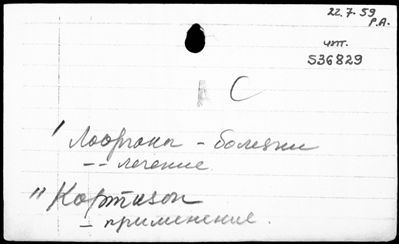 22.7.59
P.A.
чит.
S36829
C
' Лоорганы - болезни
-- лечение.
" Кортизон
- применение.